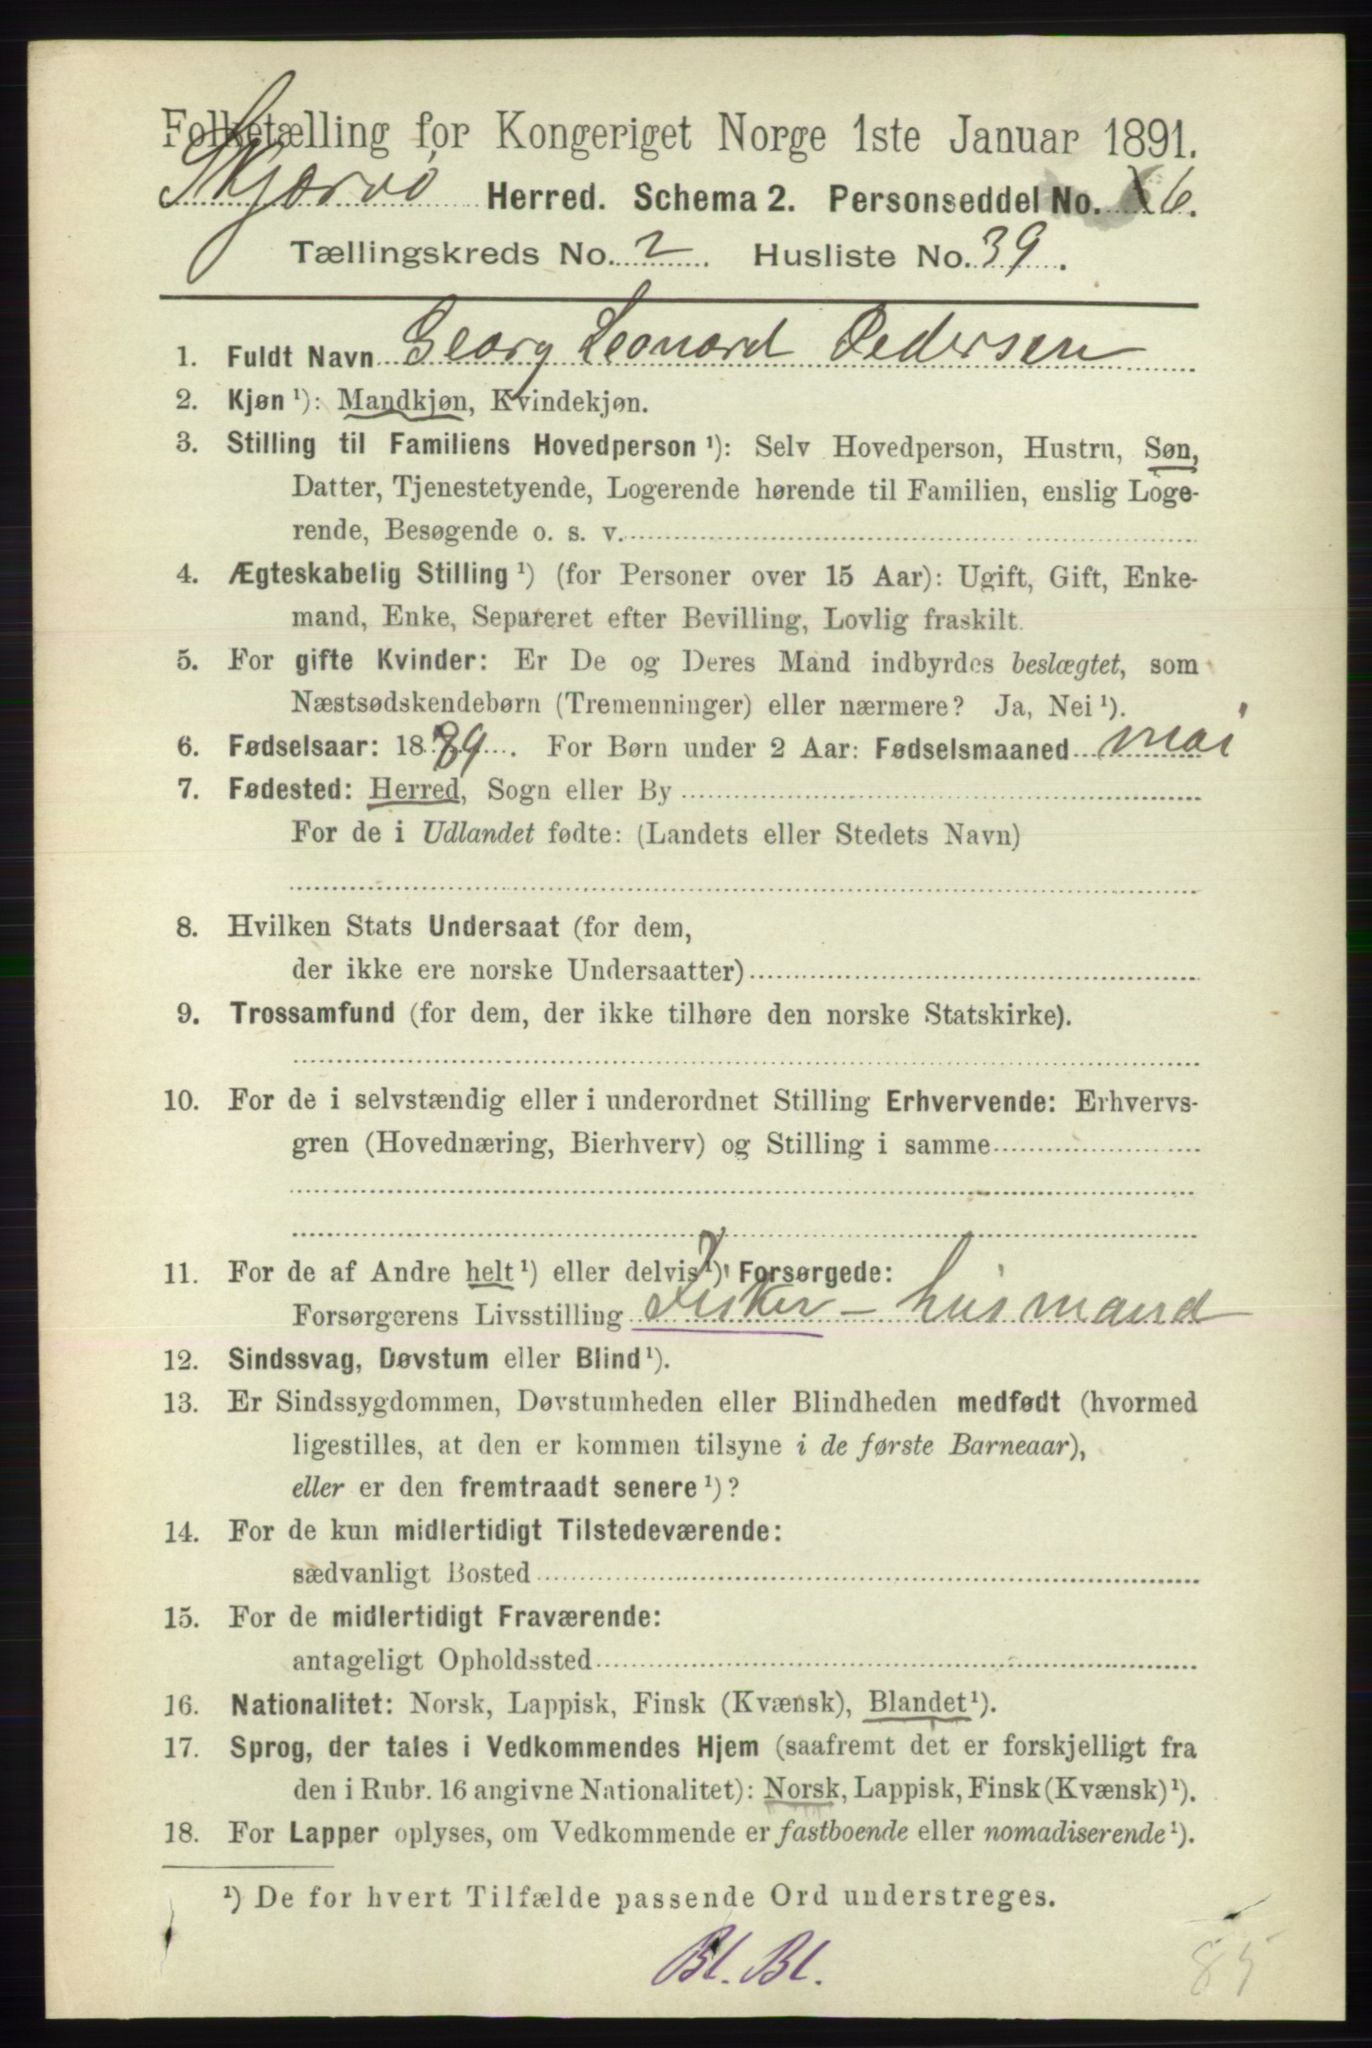 Folketælling for Kongeriget Norge 1ste Januar 1891.
Skjervö Herred. Schema 2. Personseddel No. 6.
Tællingskreds No. 2 Husliste No. 39.
1. Fuldt Navn Georg Leonard Pedersen
2. Kjøn ¹): Mandkjøn, Kvindekjøn.
3. Stilling til Familiens Hovedperson ¹): Selv Hovedperson, Hustru, Søn,
Datter, Tjenestetyende, Logerende hørende til Familien, enslig Loge-
rende, Besøgende o. s. v.
4. Ægteskabelig Stilling ¹) (for Personer over 15 Aar): Ugift, Gift, Enke-
mand, Enke, Separeret efter Bevilling, Lovlig fraskilt.
5. For gifte Kvinder: Er De og Deres Mand indbyrdes beslægtet, som
Næstsødskendebørn (Tremenninger) eller nærmere? Ja, Nei ¹).
6. Fødselsaar: 1889. For Børn under 2 Aar: Fødselsmaaned mai
7. Fødested: Herred, Sogn eller By
For de i Udlandet fødte: (Landets eller Stedets Navn)
8. Hvilken Stats Undersaat (for dem,
der ikke ere norske Undersaatter)
9. Trossamfund (for dem, der ikke tilhøre den norske Statskirke).
10. For de i selvstændig eller i underordnet Stilling Erhvervende: Erhvervs-
gren (Hovednæring, Bierhverv) og Stilling i samme
11. For de af Andre helt ¹) eller delvis ¹) Forsørgede:
Forsørgerens Livsstilling Fisker – husmand
12. Sindssvag, Døvstum eller Blind ¹).
13. Er Sindssygdommen, Døvstumheden eller Blindheden medfødt (hvormed
ligestilles, at den er kommen tilsyne i de første Barneaar),
eller er den fremtraadt senere ¹)?
14. For de kun midlertidigt Tilstedeværende:
sædvanligt Bosted
15. For de midlertidigt Fraværende:
antageligt Opholdssted
16. Nationalitet: Norsk, Lappisk, Finsk (Kvænsk), Blandet ¹).
17. Sprog, der tales i Vedkommendes Hjem (saafremt det er forskjelligt fra
den i Rubr. 16 angivne Nationalitet): Norsk, Lappisk, Finsk (Kvænsk) ¹).
18. For Lapper oplyses, om Vedkommende er fastboende eller nomadiserende ¹).
¹) De for hvert Tilfælde passende Ord understreges.
Bl. Bl.
85